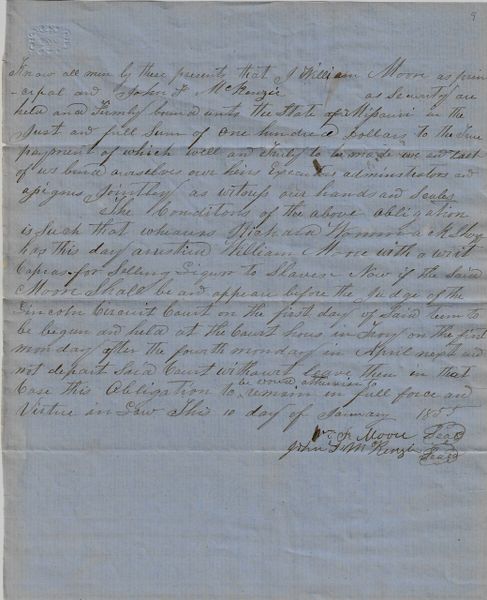 9
Know all men by these presents that I William Moore as prin
-cipal and John F McKenzie as Security are
held and Firmly bound unto the State of Missouri in the
Just and full Sum of One hundred Dollars to the True
payment of which well and Truly to be made we and Each
of us bind ourselves our heirs Executors administrators and
asigns Jointley as witness our hands and Seales
The Conditions of the above obligation
is Such that whereas Richard
has this day arrested William Moore with a writ
Capias for Selling Liquor to Slaves Now if the Said
Moore Shall be and appear before the Judge of the
Lincoln Circuit Court on the first day of Said term to
be begun and held at the Court hous in Troy on the first
monday after the fourth monday in April next and
not depart Said Court without leave then in that
be void otherwise
Case this Obligation to remain in full force and
Virtue in Law This 10 day of January 1855
Wm F Moore Seal
John F McKenzie Seal